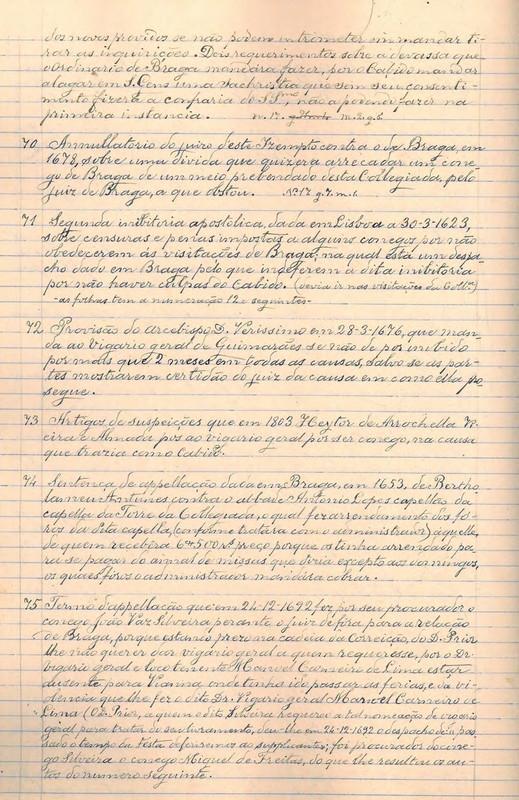 dos novos providos se não podem intrometer sim mandar ti-
rar as inquirições. Dois requerimentos sobre a devassa que
o Ordinario de Braga mandára fazer, por o Cabido mandar
alagar em S. Gens uma Sachristia que sem seu consenti-
mento fizera a confraria do SS.mo, não a podendo fazer na
primeira instancia. m. 17.
70 Annullatorio do juizo deste Izempto contra o de Braga, em
1678, sobre uma divida que quizera arrecadar um cone-
go de Braga de um meio prebendado desta Collegiada, pelo
juiz de Braga, a que obstou. Nº 17 g. 7. m. 1.
71 Segunda inibitoria apostolica, dada em Lisboa a 30-3-1623,
sobre censuras e penas impostas a alguns conegos por não
obedecerem ás visitações de Braga; na qual está um despa-
cho dado em Braga pelo que indeferem a dita inibitoria
por não haver culpas do Cabido. (devia ir nas visitações da Coll.ª)
- as folhas tem a numeração 12 e seguintes -
72 Provisão do arcebispo D. Verissimo em 28-3-1676, que man-
da ao vigario geral de Guimarães se não dê por inibido
por mais que 2 meses em todas as causas, salvo se as par-
tes mostrarem certidão do juiz da causa em como ella pro-
segue.
73 Artigos de suspeições que em 1803 Heytor de Arrochella Vi-
eira e Almada poz ao vigario geral por ser conego, na causa
que trazia com o Cabido.
74 Sentença de appellação dada em Braga, em 1653, de Bertho-
lameu Antunes contra o abbade Antonio Lopes capellão da
capella da Torre da Collegiada, o qual fez arrendamento dos fó-
ros da dita capella, (conforme tratára como administrador) áquelle,
de quem recebêra 64$500 rs. preço porque os tinha arrendado pa-
ra se pagar do annal de missas que diria excepto aos domingos,
os quaes foros o administrador mandára cobrar.
75 Termo d'appellação que em 24-12-1692 fez por seu procurador o
conego João Vaz Silveira perante o juiz de fóra para a relação
de Braga, porque estando prezo na cadeia da Correição, o D. Prior
lhe não querer dar vigario geral a quem requeresse, por o Dr.
vigario geral e locotenente Manoel Carneiro de Lima estar
ausente para Vianna onde tinha ido passar as ferias, e da vi-
olencia que lhe fez o dito Dr. Vigario geral Manoel Carneiro de
Lima (O D. Prior, a quem o dito Silveira requereu a tal nomeação de vigario
geral para tratar do seu livramento, deu-lhe em 24-12-1692 o despacho de: pas-
sado o tempo da festa deferiremos ao supplicante; foi procurador do cone-
go Silveira o conego Miguel de Freitas, do que lhe resultou os au-
tos do numero seguinte.